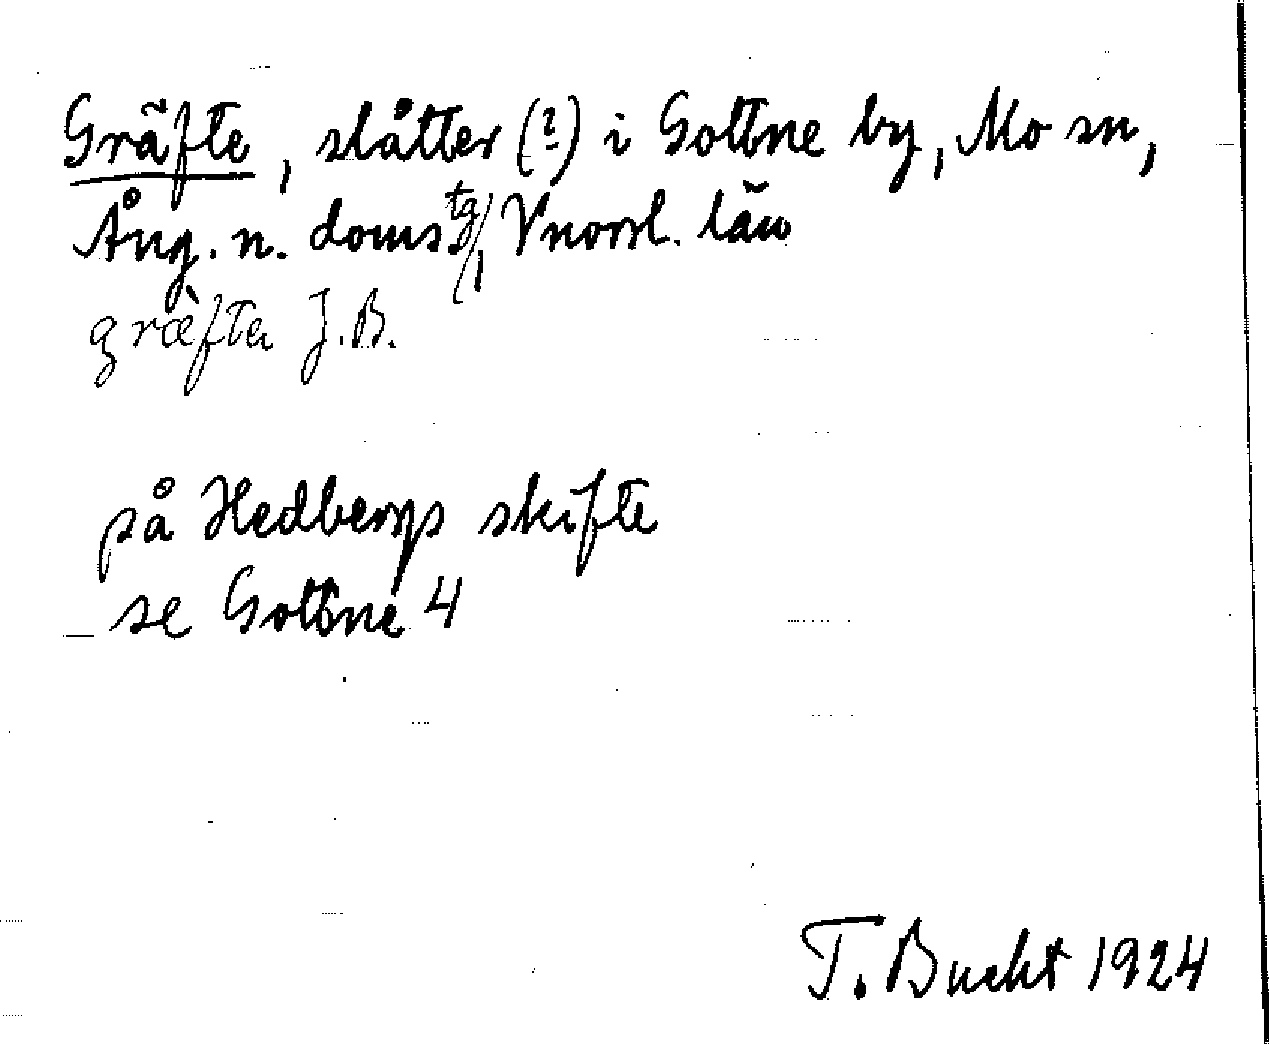 Gräfte, slåtter (?) i Gottne by, Mo sn,
Ång. n. domstg, Vnorrl. län
græ̀fta J.B.
på Hedbergs skifte
se Gottne 4
T. Bucht 1924